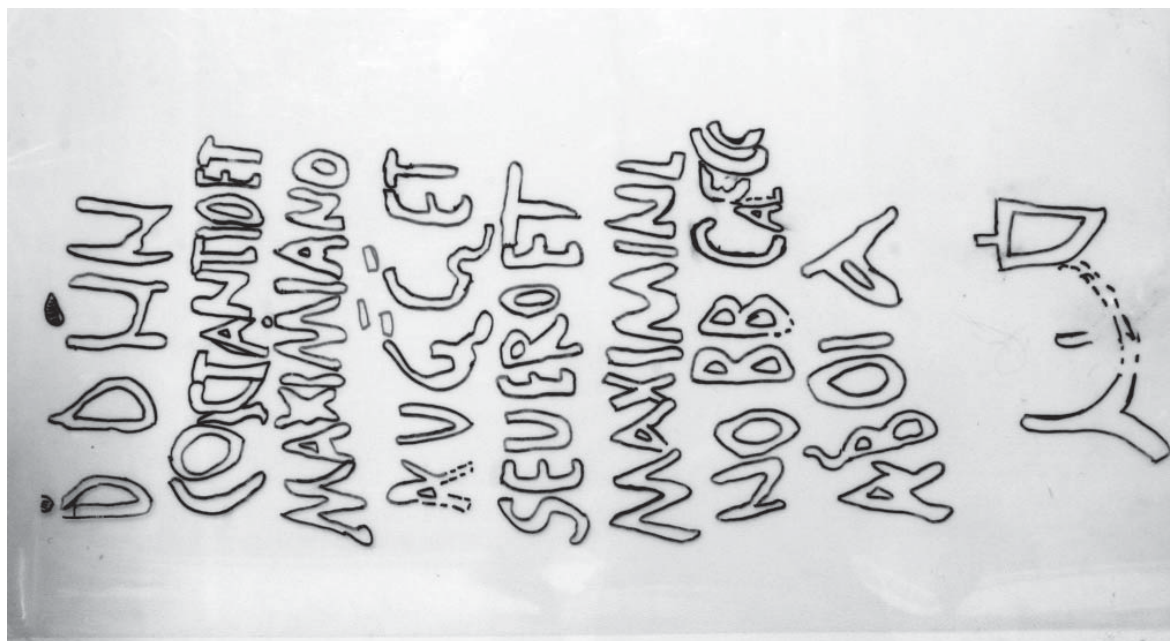 DDHN
COSTANTIO ET
MAXIMIANO
AVGG ET
SEUERO ET
MAXIMINL
NOBB CAE
ABOIA